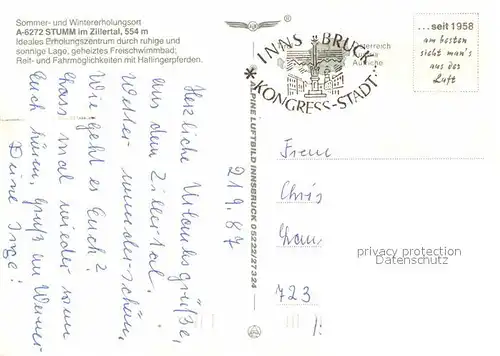 Sommer- und Wintererholungsort
A-6272 STUMM im Zillertal, 554 m
Ideales Erholungszentrum durch ruhige und
sonnige Lage, geheiztes Freischwimmbad;
Reit- und Fahrmöglichkeiten mit Haflingerpferden.
Herzliche Urlaubsgrüße,
aus dem Zillertal.
Wetter wunderschön,
Wie geht es Euch?
Lass mal wieder von
Euch hören, Gruß an Werner
Deine Inge!
21.9.87
ALPINE LUFTBILD INNSBRUCK 05222/27324
®
INNSBRUCK
* KONGRESS-STADT
...seit 1958
am besten
sieht man's
aus der
Luft
Chris
723
privacy protection
Datenschutz